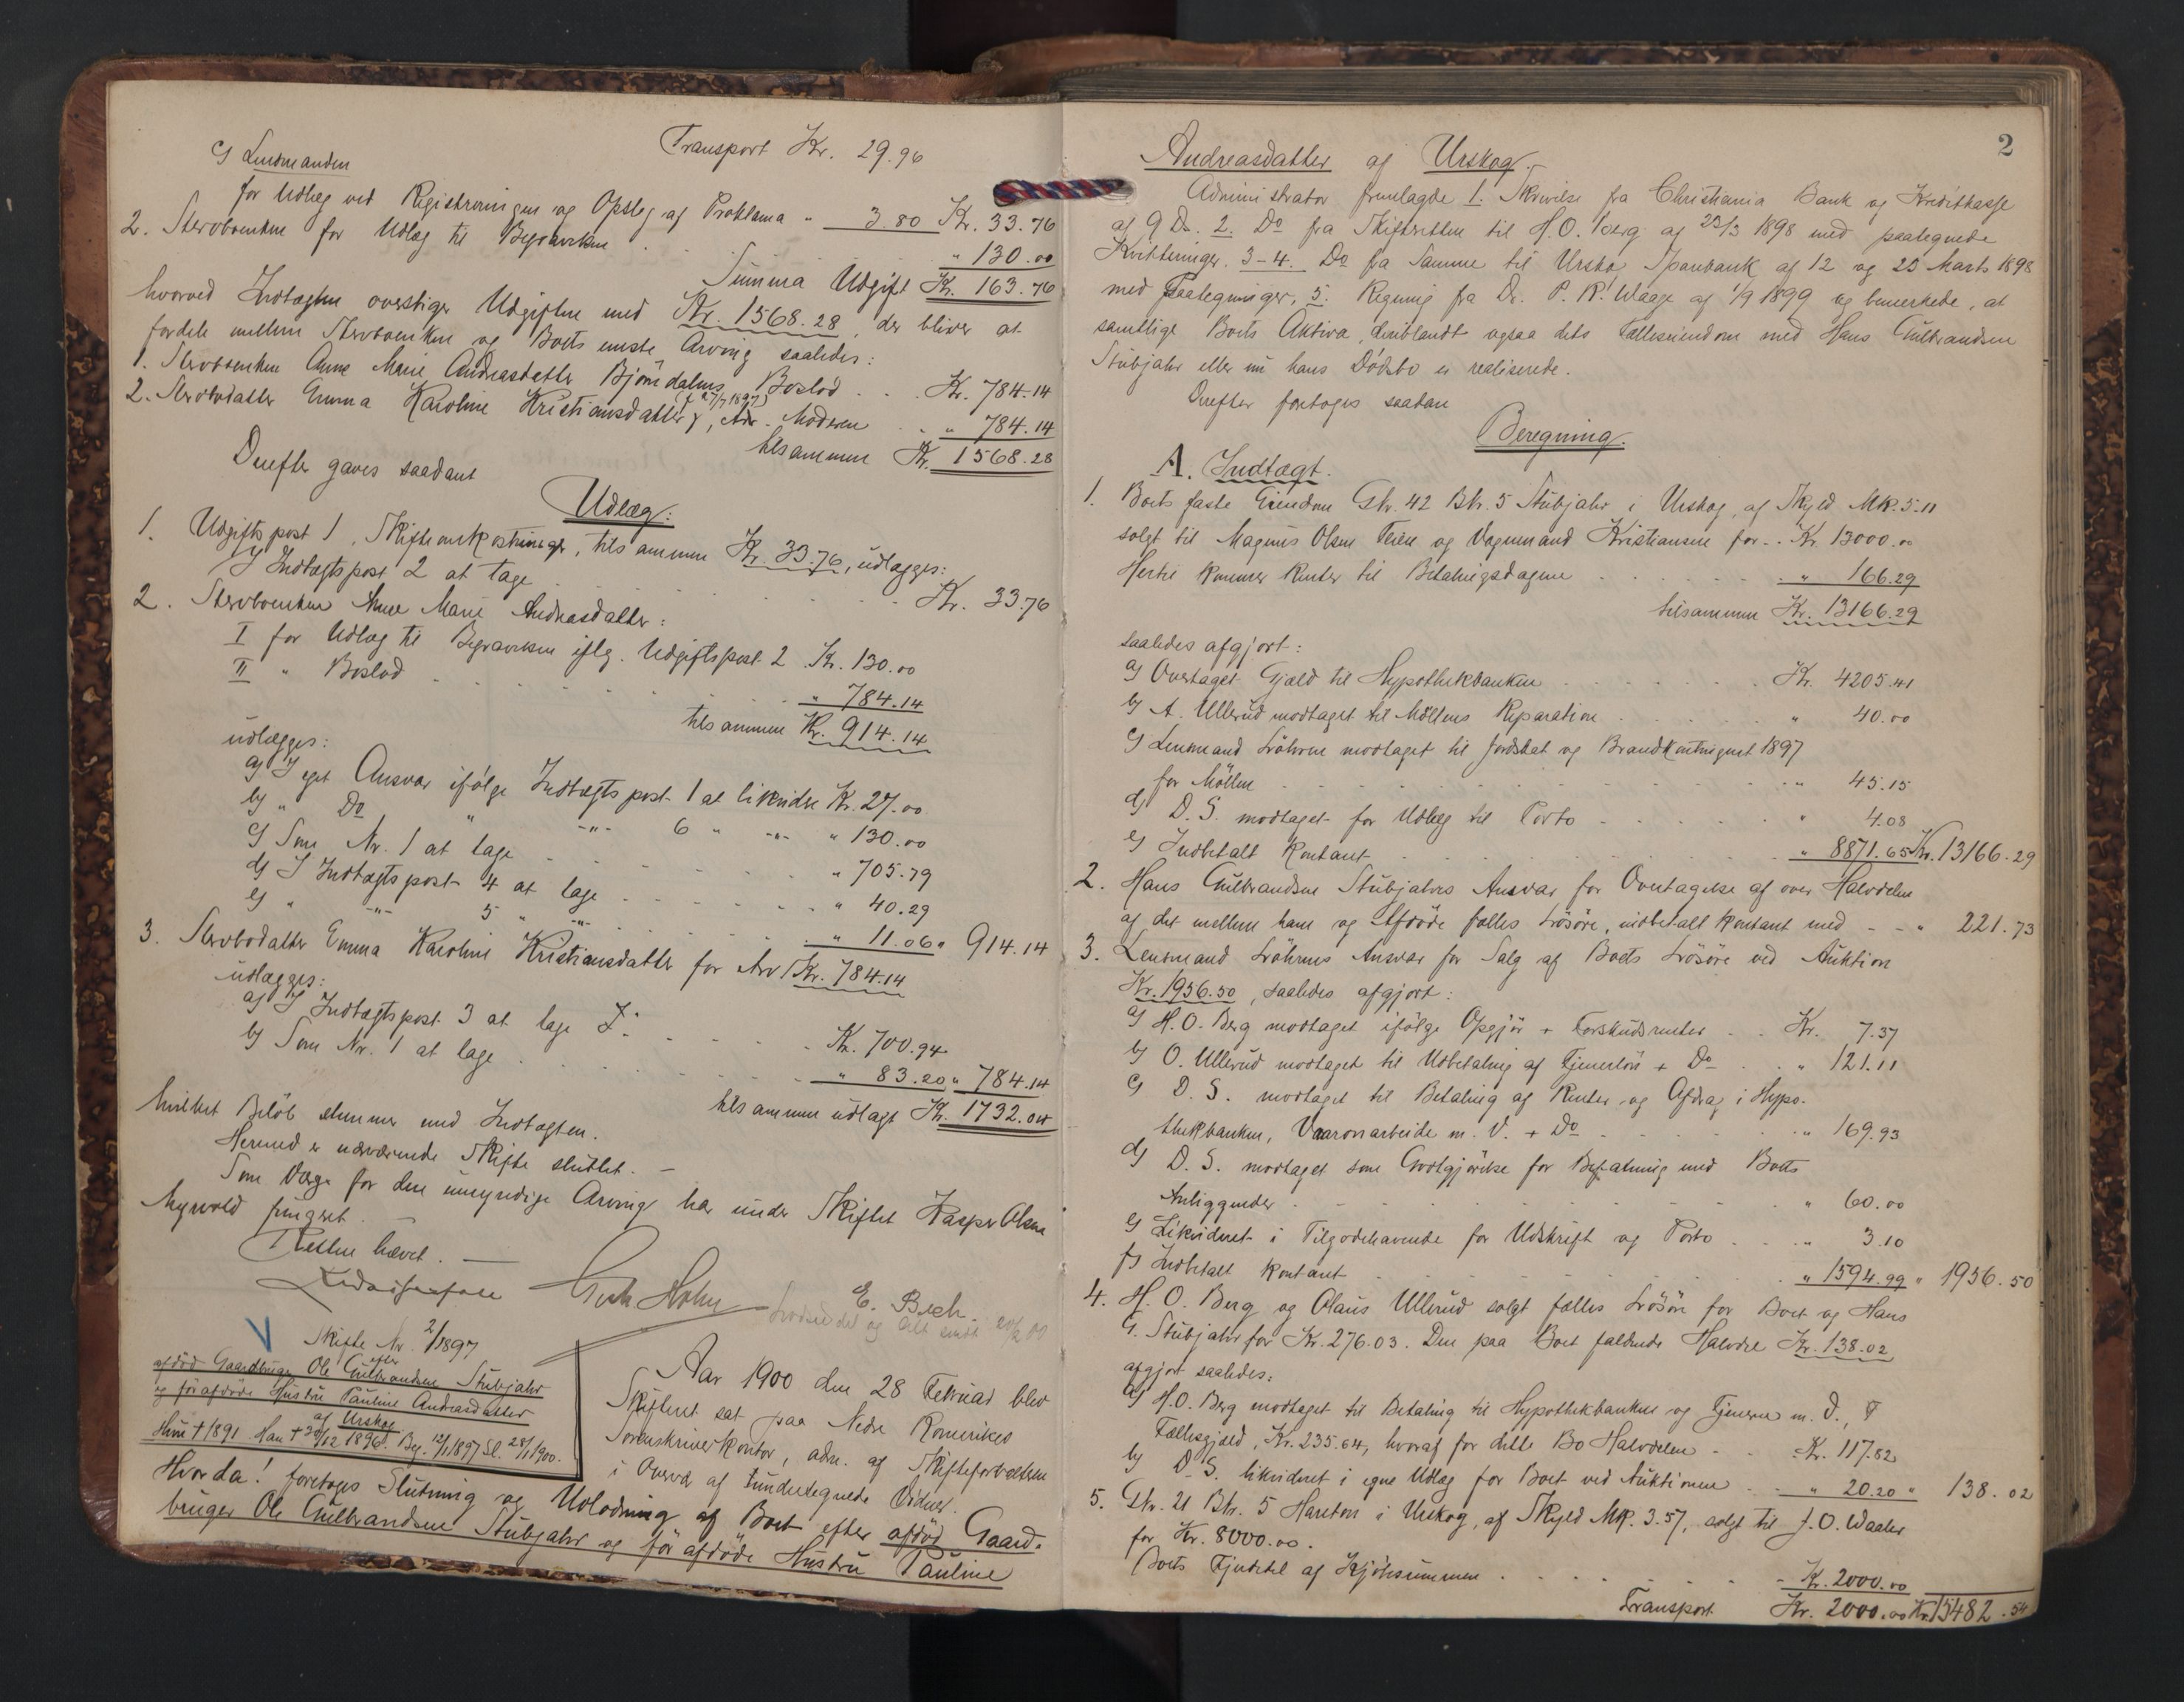 Transport Kr. 29.96
c) Lensmanden
for Udlæg ved Registreringen og Opslag af Proklama " 3.80 Kr. 33.76
2. Stervboenken for Udlæg til Begravelsen . . . " 130.00
Summa Udgift Kr. 163.76
hvorved Indtægten overstiger Udgiften med Kr. 1568.28, der bliver at
fordele mellem Stervboenken og Boets eneste Arving saaledes:
1. Stervboenken Anne Marie Andreasdatter Bjöndalens Boslod . . . Kr. 784.14
2. Stervbodatter Emma Karoline Kristiansdatter (f. 27/7 1897), Adr. Moderen . . " 784.14
tilsammen Kr. 1568.28
Derefter gaves saadant
Udlæg:
1. Udgiftspost 1, Skifteomkostninger, tilsammen Kr. 33.76, udlægges:
I Indtægtspost 2 at tage . . . Kr. 33.76
2. Stervboenken Anne Marie Andreasdatter:
I for Udlæg til Begravelsen iflg. Udgiftspost 2 Kr. 130.00
II " Boslod . . . " 784.14
tilsammen Kr. 914.14
udlægges:
a) I eget Ansvar ifølge Indtægtspost 1 at likvidere Kr. 27.00
b) " Do " -"- 6 " -"- " 130.00
c) Som Nr. 1 at tage . . . " 705.79
d) I Indtægtspost 4 at tage . . . " 40.29
e) " -"- 5 " -"- . . . " 11.06 " 914.14
3. Stervbodatter Emma Karoline Kristiansdatter for Arv Kr. 784.14
udlægges:
a) I Indtægtspost 3 at tage . . . Kr. 700.94
b) Som Nr. 1 at tage . . . " 83.20 " 784.14
tilsammen udlagt Kr. 1732.04
hvilket Beløb stemmer med Indtægten.
Hermed er nærværende Skifte sluttet. —
Som Værge for den umyndige Arving har under Skiftet Kasper Olsen
Myrvold fungeret. —
Retten hævet. —
E. Bech.
Skifte Nr. 2/1897
efter
afdød Gaardbruger Ole Gulbrandsen Stubjahr
og förafdöde Hustru Pauline Andreasdatter
af Urskog
Hun † 1891. Han † 20/12 1896. Beg. 12/1 1897 Sl. 28/1 1900.
Aar 1900 den 28 Februar blev
Skifteret sat paa Nedre Romerikes
Sorenskriverkontor, adm. af Skifteforvalteren
i Overvær af undertegnede Vidner.
Hvorda! foretoges Slutning og Udlodning af Boet efter afdød Gaard-
bruger Ole Gulbrandsen Stubjahr og för afdöde Hustru Pauline
2
Andreasdatter af Urskog.—
Administrator fremlagde 1. Skrivelse fra Christiania Bank og Kreditkasse
af 9 Ds. 2. Do fra Skifteretten til H. O. Berg af 23/3 1898 med paategnede
Kvitteringer. 3-4. Do fra Samme til Urskog Sparebank af 12 og 23 Marts 1898
med Paategninger, 5. Regning fra Dr. P. R. Waage af 1/9 1899 og bemerkede, at
samtlige Boets Aktiva, deriblandt ogsaa dets Fælleseiendom med Hans Gulbrandsen
Stubjahr eller nu hans Dödsbo er realiserede.
Derefter foretoges saadan
Beregning.
A. Indtægt.
1. Boets faste Eiendom Gbr. 42 Bbr. 5 Stubjahr i Urskog, af Skyld Mk. 5.11
solgt til Magnus Olsen Teien og Vagnmand Kristiansen for . . Kr. 13000.00
Hertil kommer Renter til Betalingsdagene . . . " 166.29
tilsammen Kr. 13166.29
saaledes afgjort:
a) Overtaget Gjæld til Hypothekbanken . . . Kr. 4205.41
b) A. Ullerud modtaget til Möllens Reparation . . . " 40.00
c) Lensmand Löhren modtaget til Jordskat og Brandkontingent 1897
for Möllen . . . " 45.15
d) D. S. modtaget for Udlæg til Porto . . . " 4.08
e) Indbetalt kontant . . . " 8871.65 Kr. 13166.29
2. Hans Gulbrandsen Stubjahrs Ansvar for Overtagelse af over Halvdelen
af det mellem ham og Afdöde fælles Lösöre, indbetalt kontant med - - " 221.73
3. Lensmand Löhrens Ansvar for Salg af Boets Lösöre ved Auktion
Kr. 1956.50, saaledes afgjort:
a) H. O. Berg modtaget ifölge Opgjör + Forskudsrenter . . Kr. 7.37
b) O. Ullerud modtaget til Udbetaling af Tjenerlön + Do . . " 121.11
c) D. S. modtaget til Betaling af Renter og Afdrag i Hypo-
thekbanken, Vaaronarbeide m. V. + Do . . . " 169.93
d) D. S. modtaget som Godtgjörelse for Befatning med Boets
Anliggender . . . " 60.00
e) Likvideret i Tilgodehavende for Udskrift og Porto . . . " 3.10
f) Indbetalt kontant . . . " 1594.99 " 1956.50
4. H. O. Berg og Olaus Ullerud solgt fælles Lösöre for Boet og Hans
G. Stubjahr for Kr. 276.03. Den paa Boet faldende Halvdel Kr. 138.02
afgjort saaledes:
a) H. O. Berg modtaget til Betaling til Hypothekbanken og Tjenere m. V.,
Fællesgjæld, Kr. 235.64, hvoraf for dette Bo Halvdelen . . Kr. 117.82
b) D. S. likvideret i egne Udlæg for Boet ved Auktionen . . " 20.20 " 138.02
5. Gbr. 21 Bbr. 5 Hareton i Urskog, af Skyld Mk. 3.57, solgt til J. O. Waaler
for Kr. 8000.00.
Boets Fjerdedel af Kjöbesummen . . . Kr. 2000.00
Transport Kr. 2000.00 Kr. 15482.54